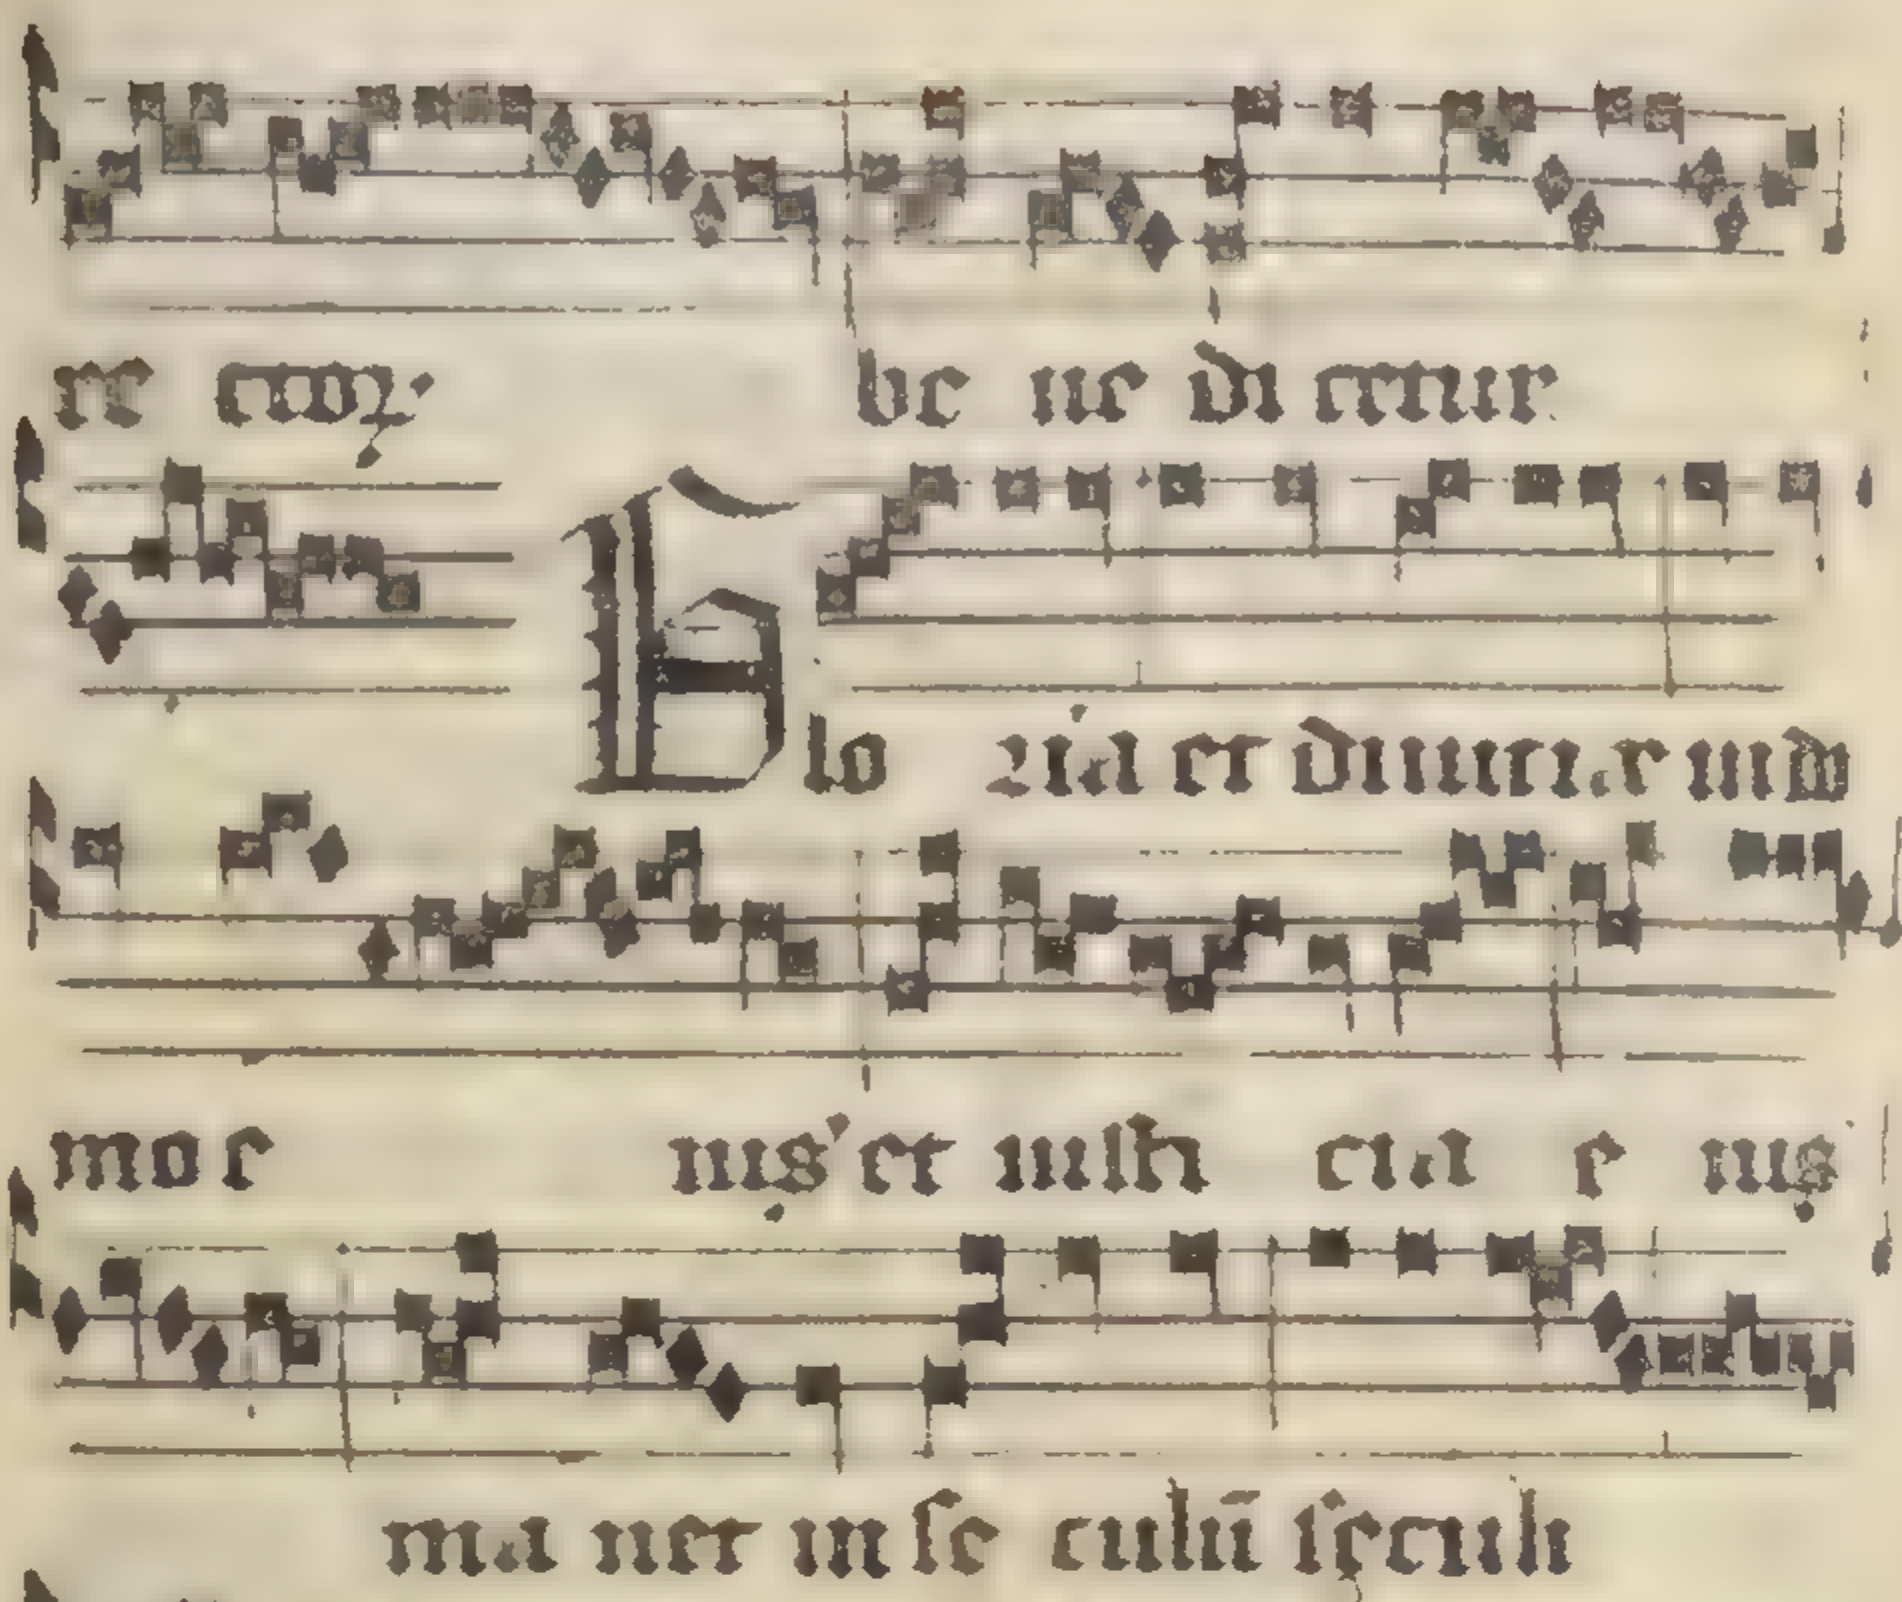 re ctoꝝ be ne di cetur
Glo ria et diuitie in do
mo e ius et iusti cia e ius
ma net in se culū seculi